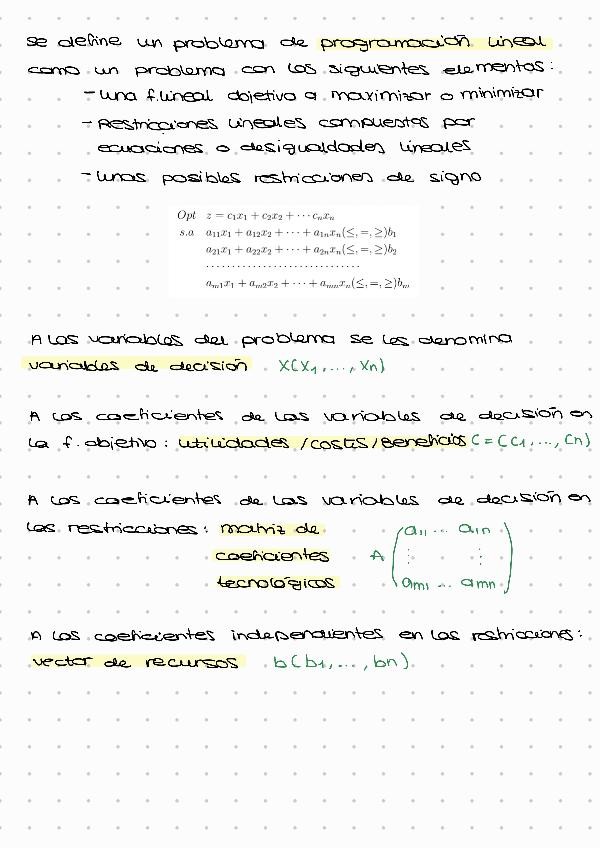 se define un problema de programación lineal
como un problema con los siguientes elementos:
- una f.lineal objetivo a maximizar o minimizar
- Restricciones lineales compuestas por
ecuaciones o desigualdades lineales
- unas posibles restricciones de signo
Opt z = c₁x₁ + c₂x₂ + ··· cₙxₙ
s.a a₁₁x₁ + a₁₂x₂ + ··· + a₁ₙxₙ(≤, =, ≥)b₁
a₂₁x₁ + a₂₂x₂ + ··· + a₂ₙxₙ(≤, =, ≥)b₂
..............................
aₘ₁x₁ + aₘ₂x₂ + ··· + aₘₙxₙ(≤, =, ≥)bₘ
A las variables del problema se les denomina
variables de decisión X(X₁, ..., Xn)
A los coeficientes de las variables de decisión en
la f. objetivo: utilidades / costes / Beneficios C = (C₁, ..., Cn)
A los coeficientes de las variables de decisión en
las restricciones: matriz de
coeficientes
tecnológicos
A ( a₁₁ ... a₁n
⋮ ⋮
am₁ ... amn )
A los coeficientes independientes en las restricciones:
vector de recursos b(b₁, ..., bn)